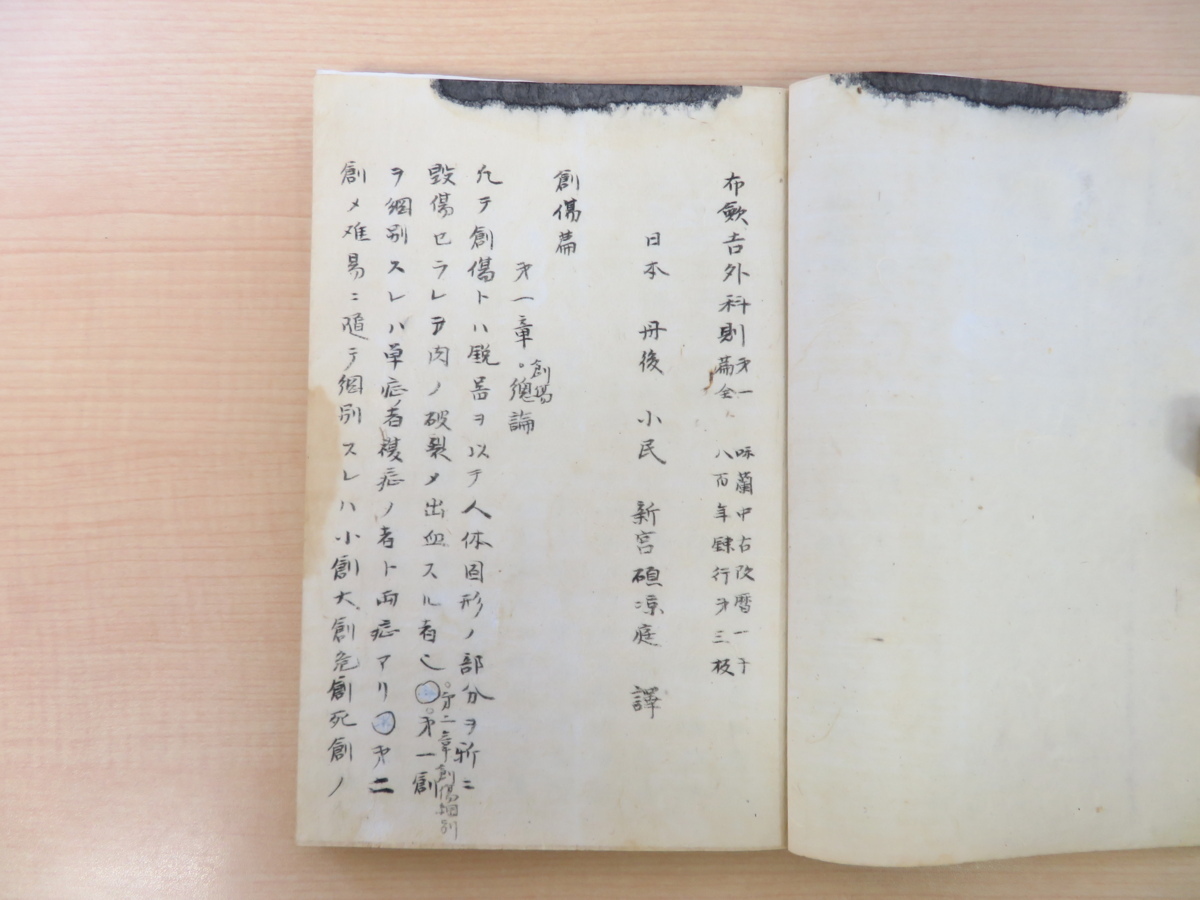 布歛吉外科則 第一篇全 咊蘭中古改暦一千八百年鏤行第三板
日本 丹後 小民 新宮碩凉庭 譯
創傷篇
第一章 創傷總論
凡テ創傷トハ鋭器ヲ以テ人体固形ノ部分ヲ新ニ
毀傷セラレテ肉ノ破裂メ出血スル者也 第一創
第二章創傷細別
ヲ細別スレハ単症者複症ノ者ト両症アリ 第二
創メ难易ニ随テ細別スレハ小創大創危創死創ノ